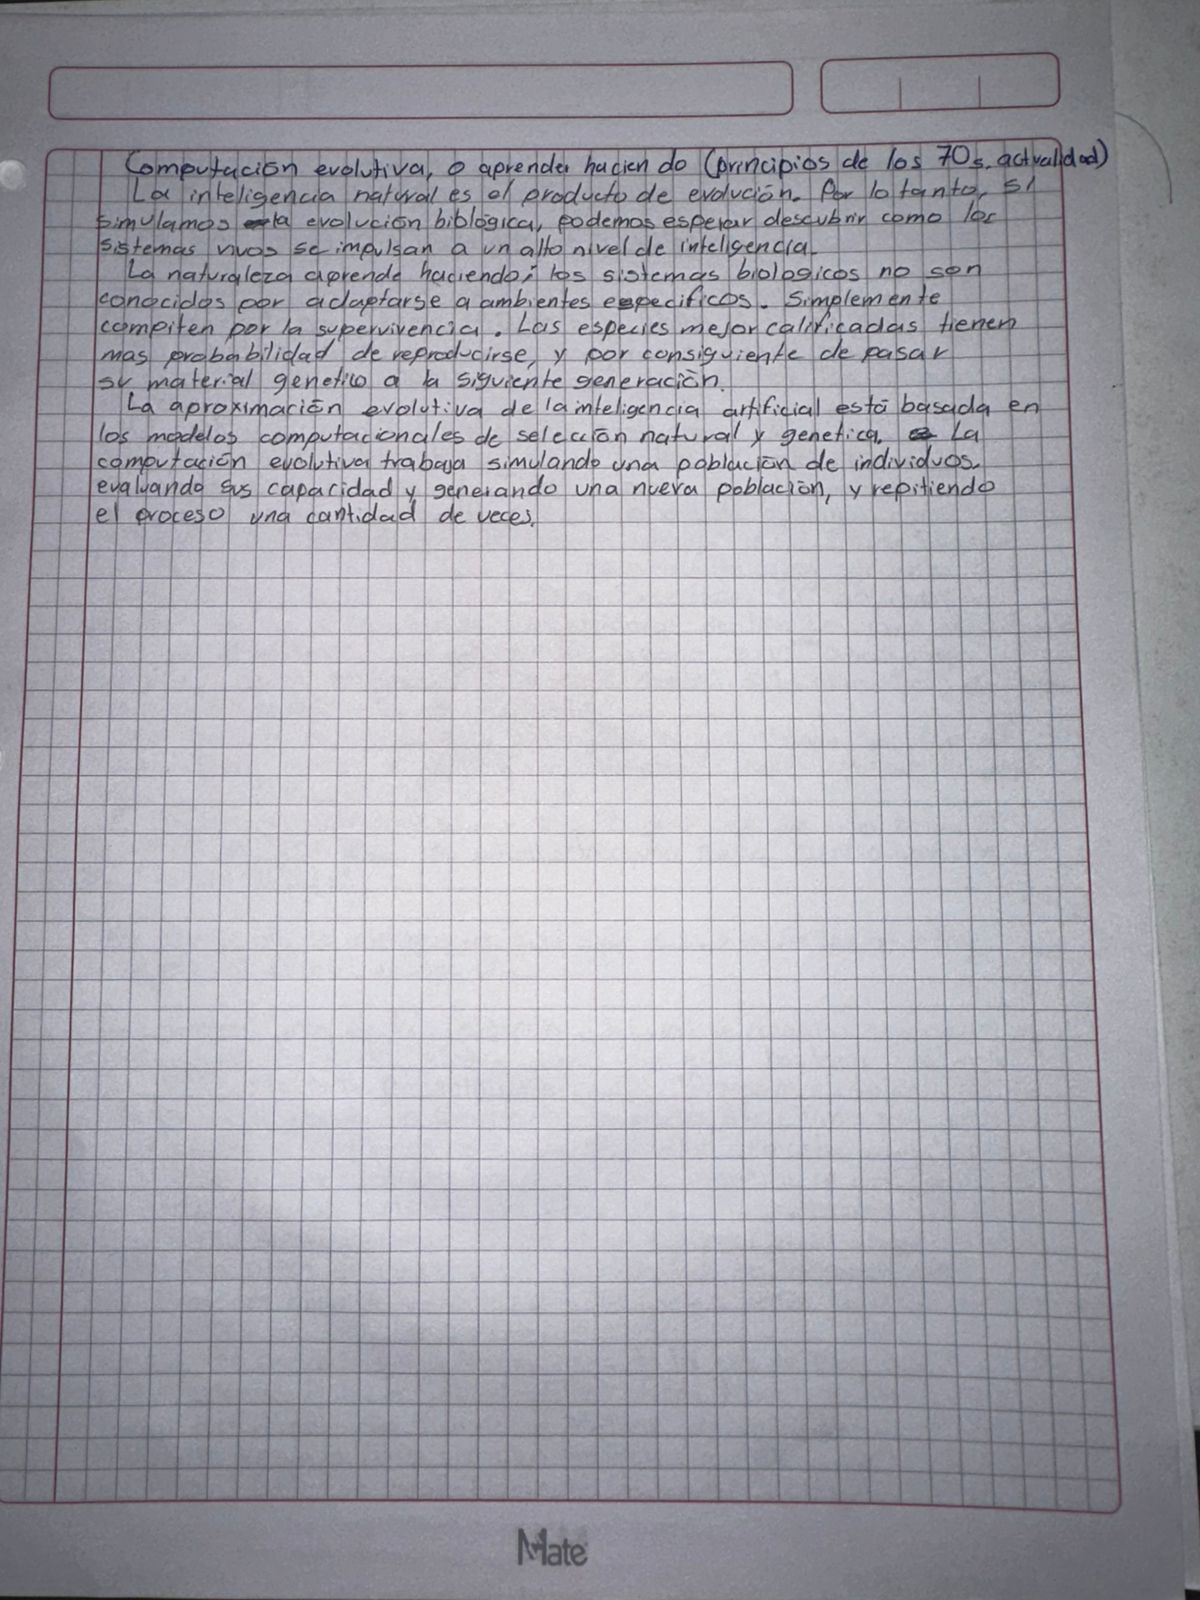 Computación evolutiva, o aprender haciendo (principios de los 70s. actualidad)
La inteligencia natural es el producto de evolución. Por lo tanto, si
simulamos la evolución biblogica, podemos esperar descubrir como los
sistemas vivos se impulsan a un alto nivel de inteligencia.
La naturaleza aprende haciendo; los sistemas biologicos no son
conocidos por adaptarse a ambientes especificos. Simplemente
compiten por la supervivencia. Las especies mejor calificadas tienen
mas probabilidad de reproducirse, y por consiguiente de pasar
su material genetico a la siguiente generación.
La aproximación evolutiva de la inteligencia artificial está basada en
los modelos computacionales de selección natural y genetica. La
computación evolutiva trabaja simulando una población de individuos.
evaluando sus capacidad y generando una nueva población, y repitiendo
el proceso una cantidad de veces.
Mate